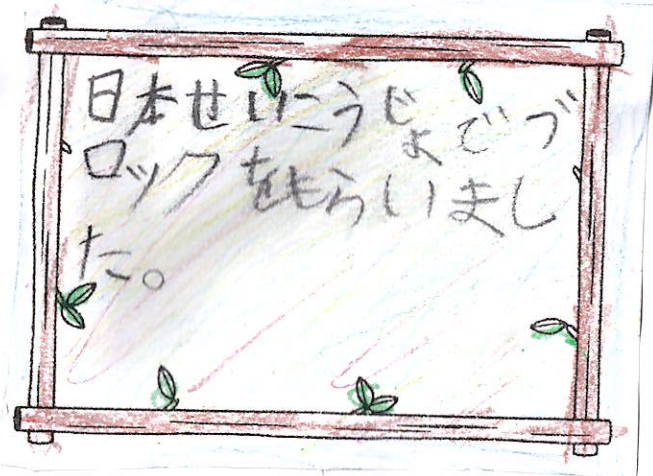 日本せいこうじょでブ
ロックをもらいまし
た。